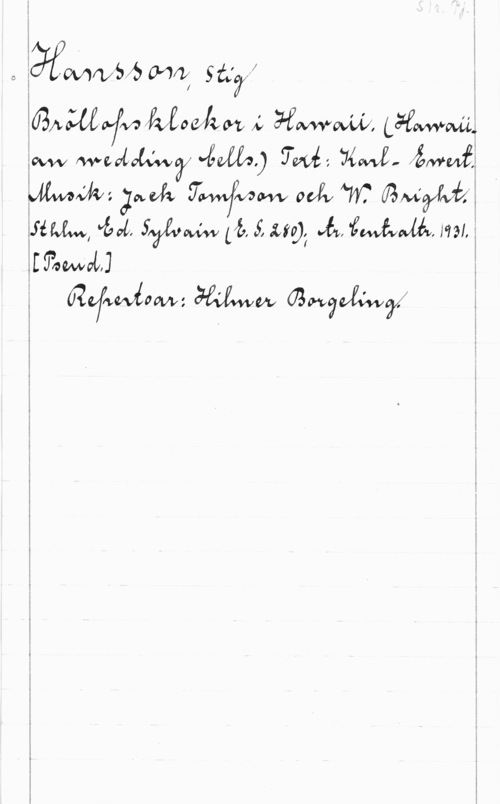 Hansson, Stig
Bröllopsklockor i Hawaii. (Hawaii-
an wedding bells.) Text: Karl-Ewert.
Musik: Jack Tompson och W. Bright.
Sthlm, Ed. Sylvain (E. S. 280); tr. Centraltr. 1931.
[Pseud.]
Repertoar: Hilmer Borgeling.